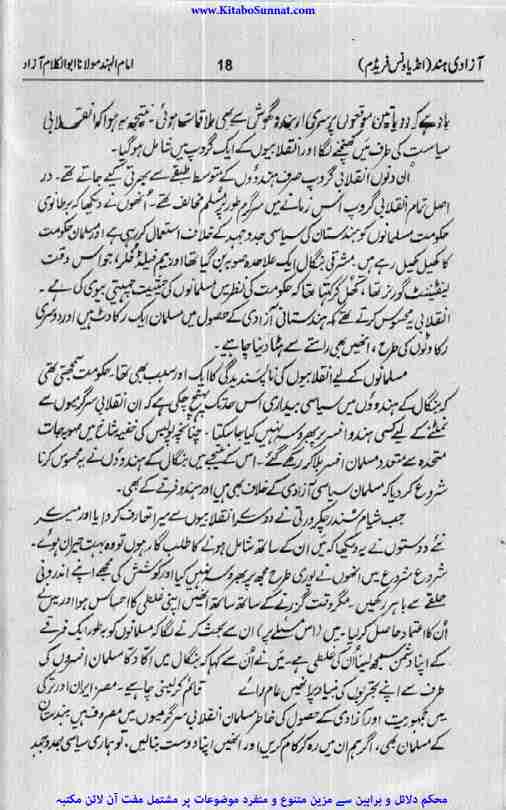 www.KitaboSunnat.com
آزادی ہند (انڈیا ونس فریڈم) 18 امام الہند مولانا ابوالکلام آزاد
یاد ہے کہ دو یا تین موقعوں پر سری اربندو گھوش سے بھی ملاقات ہوئی۔ نتیجہ یہ ہوا کہ انقلابی
سیاست کی طرف میں کھنچنے لگا اور انقلابیوں کے ایک گروپ میں شامل ہو گیا۔
اُن دنوں انقلابی گروپ صرف ہندوؤں کے متوسط طبقے سے بھرتی کیے جاتے تھے۔ در
اصل تمام انقلابی گروپ اُس زمانے میں سرگرم طور پر مُسلم مخالف تھے۔ اُنھوں نے دیکھا کہ برطانوی
حکومت مسلمانوں کو ہندستان کی سیاسی جدوجہد کے خلاف استعمال کر رہی ہے اور مسلمان حکومت
کا کھیل کھیل رہے ہیں۔ مشرقی بنگال ایک علاحدہ صوبہ بن گیا تھا اور بیم فیلڈ فلر، جو اس وقت
لیفٹیننٹ گورنر تھا، کھُل کر کہتا تھا کہ حکومت کی نظر میں مسلمانوں کی حیثیت چہیتی بیوی کی ہے۔
انقلابی یہ محسوس کرتے تھے کہ ہندستانی آزادی کے حصول میں مسلمان ایک رکاوٹ ہیں اور دوسری
رکاوٹوں کی طرح، انھیں بھی راستے سے ہٹا دینا چاہیے۔
مسلمانوں کے لیے انقلابیوں کی ناپسندیدگی کا ایک اور سبب بھی تھا۔ حکومت سمجھتی تھی
کہ بنگال کے ہندوؤں میں سیاسی بیداری اس حد تک پہنچ چکی ہے کہ ان انقلابی سرگرمیوں سے
نمٹنے کے لیے کسی ہندو افسر پر بھروسہ نہیں کیا جا سکتا۔ چنانچہ پولیس کی خفیہ شاخ میں صوبہ جات
متحدہ سے متعدد مسلمان افسر بلا کر رکھے گئے۔ اس کے نتیجے میں بنگال کے ہندوؤں نے یہ محسوس کرنا
شروع کر دیا کہ مسلمان سیاسی آزادی کے خلاف بھی ہیں اور ہندو فرقے کے بھی۔
جب شیام سُندر چکرورتی نے دوسرے انقلابیوں سے میرا تعارف کرایا اور میرے
نئے دوستوں نے یہ دیکھا کہ میں ان کے ساتھ شامل ہونے کا طلب گار ہوں تو وہ بہت حیران ہوئے۔
شروع شروع میں انھوں نے پوری طرح مجھ پر بھروسہ نہیں کیا اور کوشش کی مجھے اپنے اندرونی
حلقے سے باہر رکھیں۔ مگر وقت گزرنے کے ساتھ ساتھ انھیں اپنی غلطی کا احساس ہوا اور میں نے
اُن کا اعتماد حاصل کر لیا۔ میں (اس مسئلے پر) ان سے بحث کرنے لگا کہ مسلمانوں کو بہ طور ایک فرقے
کے اپنا دشمن سمجھ لینا اُن کی غلطی ہے۔ میں نے اُن سے کہا کہ بنگال میں اکّا دکّا مسلمان افسروں کی
طرف سے اپنے تجربوں کی بنیاد پر انھیں عام رائے قائم کر لینی چاہیے۔ مصر، ایران اور ترکی
میں جمہوریت اور آزادی کے حصول کی خاطر مسلمان انقلابی سرگرمیوں میں مصروف ہیں۔ ہندستان
کے مسلمان بھی، اگر ہم ان میں رہ کر کام کریں اور انھیں اپنا دوست بنا لیں، تو ہماری سیاسی جدوجہد
محکم دلائل و براہین سے مزین متنوع و منفرد موضوعات پر مشتمل مفت آن لائن مکتبہ